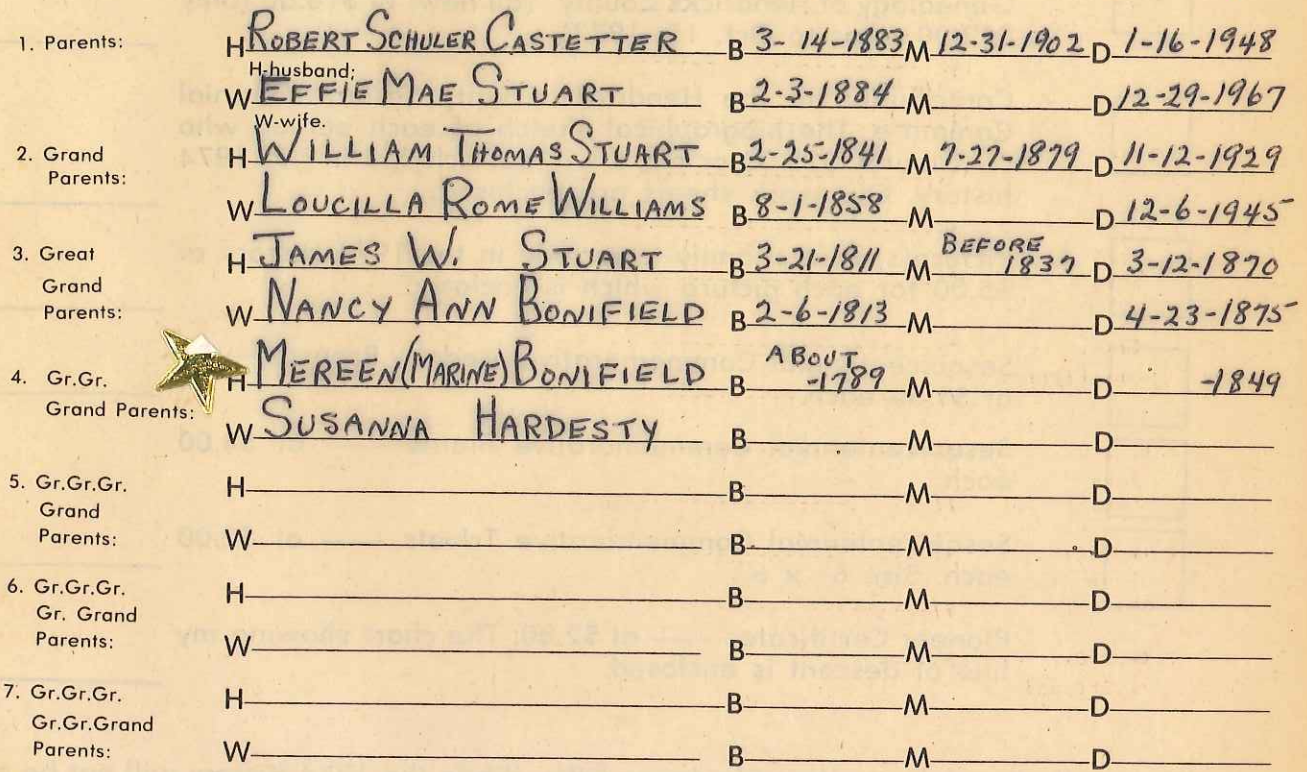 1. Parents: H ROBERT SCHULER CASTETTER B 3-14-1883 M 12-31-1902 D 1-16-1948
H-husband;
W EFFIE MAE STUART B 2-3-1884 M D 12-29-1967
W-wife.
2. Grand Parents: H WILLIAM THOMAS STUART B 2-25-1841 M 7-27-1879 D 11-12-1929
W LOUCILLA ROME WILLIAMS B 8-1-1858 M D 12-6-1945
3. Great Grand Parents: H JAMES W. STUART B 3-21-1811 M BEFORE 1837 D 3-12-1870
W NANCY ANN BONIFIELD B 2-6-1813 M D 4-23-1875
4. Gr.Gr. Grand Parents: H MEREEN (MARINE) BONIFIELD B ABOUT -1789 M D -1849
W SUSANNA HARDESTY B M D
5. Gr.Gr.Gr. Grand Parents: H B M D
W B M D
6. Gr.Gr.Gr. Gr. Grand Parents: H B M D
W B M D
7. Gr.Gr.Gr. Gr.Gr.Grand Parents: H B M D
W B M D